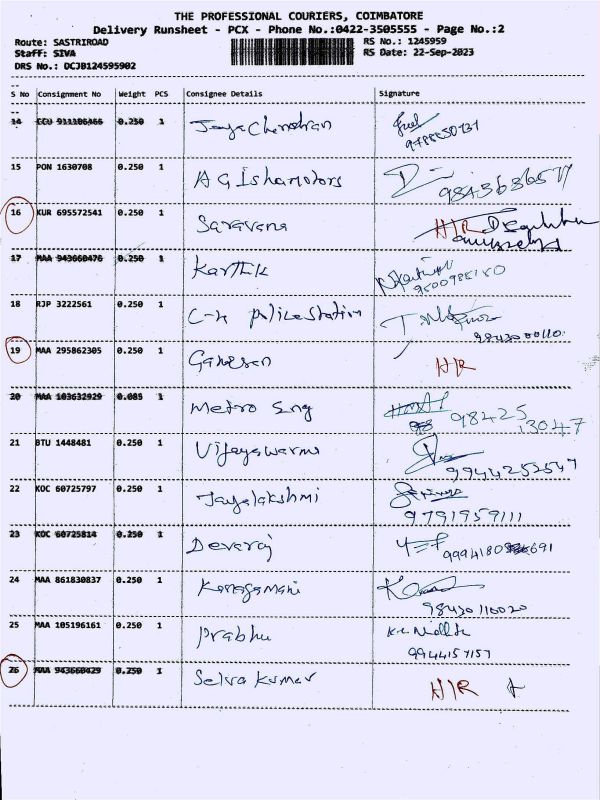 THE PROFESSIONAL COURIERS, COIMBATORE
Delivery Runsheet - PCX - Phone No.:0422-3505555 - Page No.:2
Route: SASTRIROAD RS No.: 1245959
Staff: SIVA RS Date: 22-Sep-2023
DRS No.: DCJ0124595902
S No Consignment No Weight PCS Consignee Details Signature
14 CCU 911106366 0.250 1 Jaya Chandran
9788850737
15 PON 1630708 0.250 1 A G Ishamotors
9843636577
16 KUR 695572541 0.250 1 Saravana H/R
17 MAA 943660476 0.250 1 Karthik
9500985180
18 RJP 3222561 0.250 1 C-4 Police Station
9843000110
19 MAA 295862305 0.250 1 Ganesan H/R
20 MAA 103632929 0.085 1 Metro Eng
98425 13047
21 BTU 1448481 0.250 1 Vijayawarma
9944252547
22 KOC 60725797 0.250 1 Jayalakshmi
9791959111
23 KOC 60725814 0.250 1 Devaraj
9994180 691
24 MAA 861830837 0.250 1 Kanagamani
98430110020
25 MAA 105196161 0.250 1 Prabhu
9944157157
26 MAA 943660429 0.250 1 Selva Kumar H/R